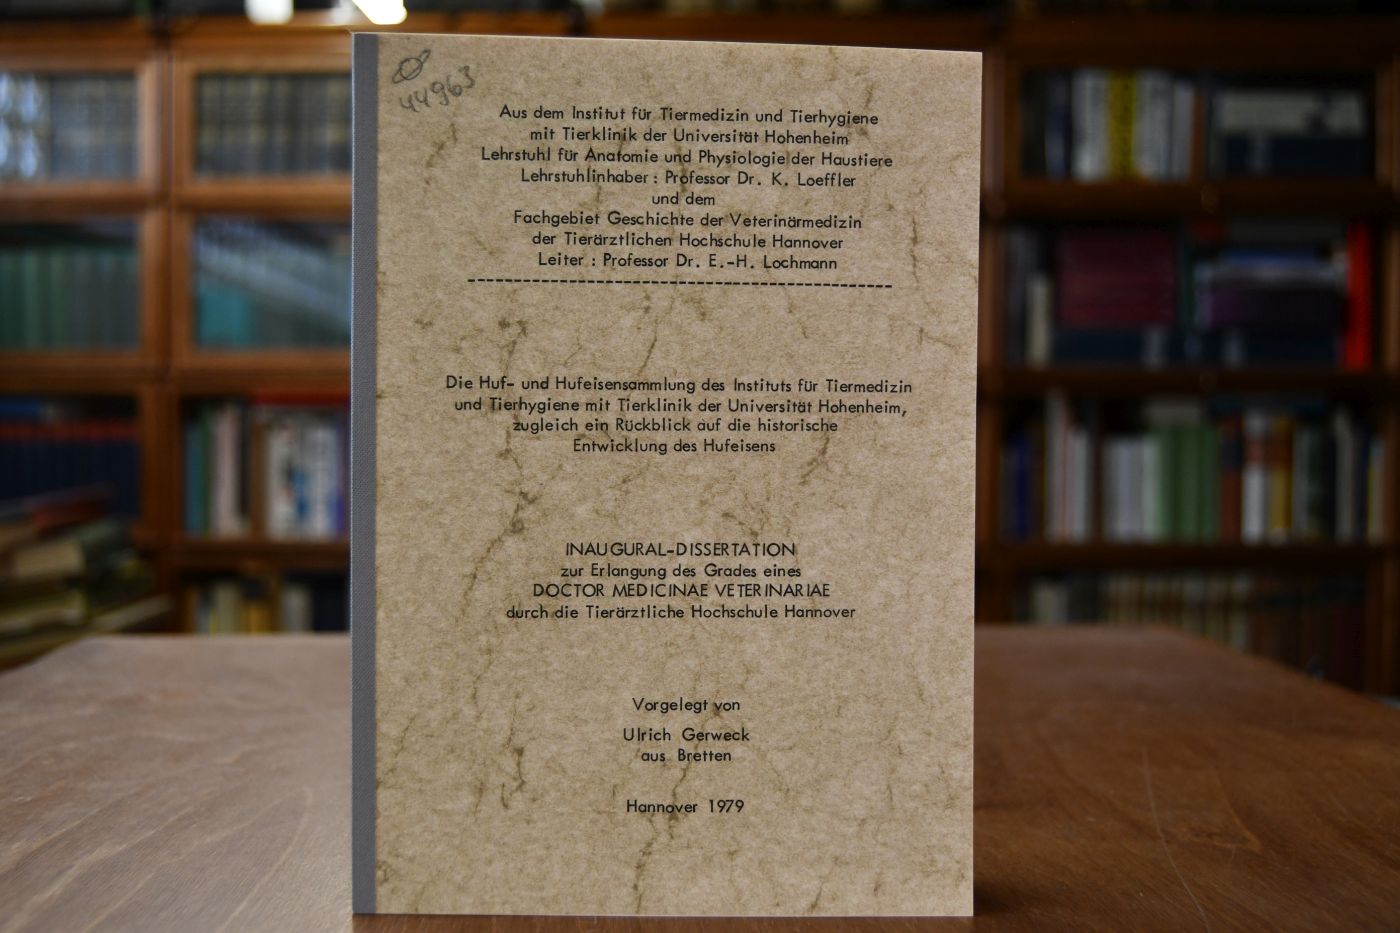 44963
Aus dem Institut für Tiermedizin und Tierhygiene
mit Tierklinik der Universität Hohenheim
Lehrstuhl für Anatomie und Physiologie der Haustiere
Lehrstuhlinhaber : Professor Dr. K. Loeffler
und dem
Fachgebiet Geschichte der Veterinärmedizin
der Tierärztlichen Hochschule Hannover
Leiter : Professor Dr. E.-H. Lochmann
Die Huf- und Hufeisensammlung des Instituts für Tiermedizin
und Tierhygiene mit Tierklinik der Universität Hohenheim,
zugleich ein Rückblick auf die historische
Entwicklung des Hufeisens
INAUGURAL-DISSERTATION
zur Erlangung des Grades eines
DOCTOR MEDICINAE VETERINARIAE
durch die Tierärztliche Hochschule Hannover
Vorgelegt von
Ulrich Gerweck
aus Bretten
Hannover 1979